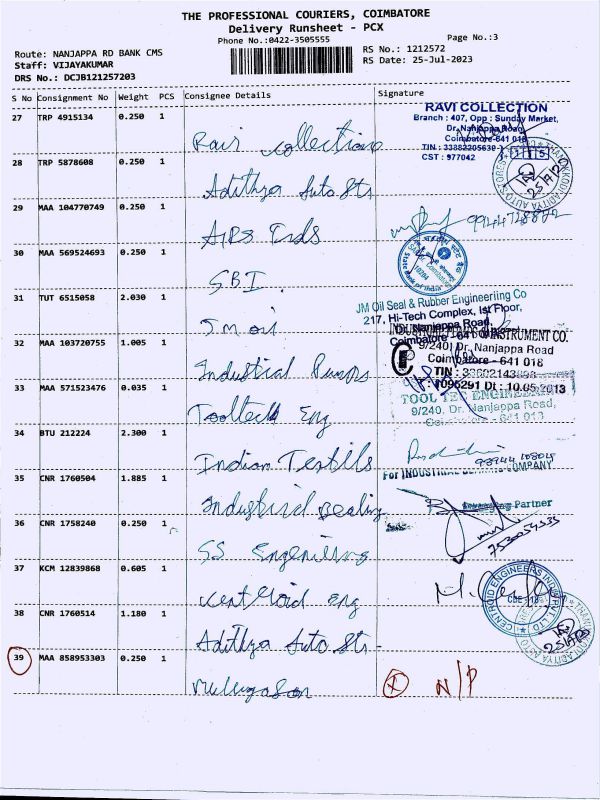 THE PROFESSIONAL COURIERS, COIMBATORE
Delivery Runsheet - PCX
Phone No.:0422-3505555
Page No.:3
Route: NANJAPPA RD BANK CMS
RS No.: 1212572
Staff: VIJAYAKUMAR
RS Date: 25-Jul-2023
DRS No.: DCJB121257203
S No Consignment No Weight PCS Consignee Details Signature
27 TRP 4915134 0.250 1 Ravi collections
RAVI COLLECTION
Branch : 407, Opp : Sunday Market,
Dr. Nanjappa Road,
Coimbatore-641 018
TIN : 33882205639
CST : 977042
28 TRP 5878608 0.250 1 Adithya Auto Sts
29 MAA 104770749 0.250 1 Inds
30 MAA 569524693 0.250 1 SBI.
State Bank of India
31 TUT 6515058 2.030 1 J.m oil
JM Oil Seal & Rubber Engineeriing Co
217, Hi-Tech Complex, Ist Floor,
Dr. Nanjappa Road,
Coimbatore - 641 018
32 MAA 103720755 1.005 1 Industrial Pumps
INSTRUMENT CO.
9/240, Dr. Nanjappa Road
Coimbatore - 641 018
TIN :
1095291 Dt : 10.05.2013
33 MAA 571523476 0.035 1 Tooltech Eng
TOOL TEC ENGINEERING
9/240, Dr. Nanjappa Road,
Coimbatore - 641 018
34 BTU 212224 2.300 1 Indian Textils
35 CNR 1760504 1.885 1 Industrial Bealing
For INDUSTRIAL COMPANY
Partner
36 CNR 1758240 0.250 1 SS Engeniering
37 KCM 12839868 0.605 1 Centroid Eng
CENTROID ENGINEERS INDIA PVT. LTD
CBE - 18
38 CNR 1760514 1.180 1 Adithya Auto Sts -
39 MAA 858953303 0.250 1 Murugason
X N/P